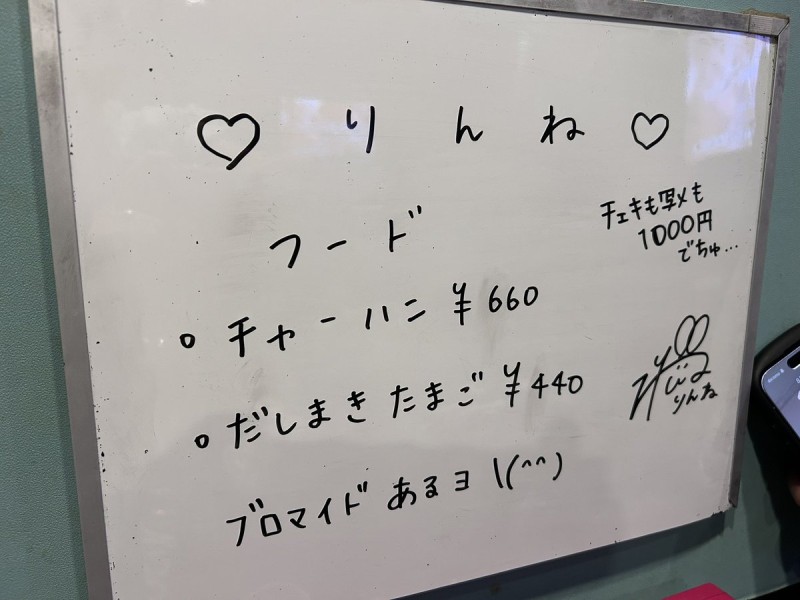 ♡ りんね ♡
フード
チェキも写メも
1000円
でちゅ...
○ チャーハン ¥660
○ だしまきたまご ¥440
りんね
ブロマイドあるヨ \(^^)